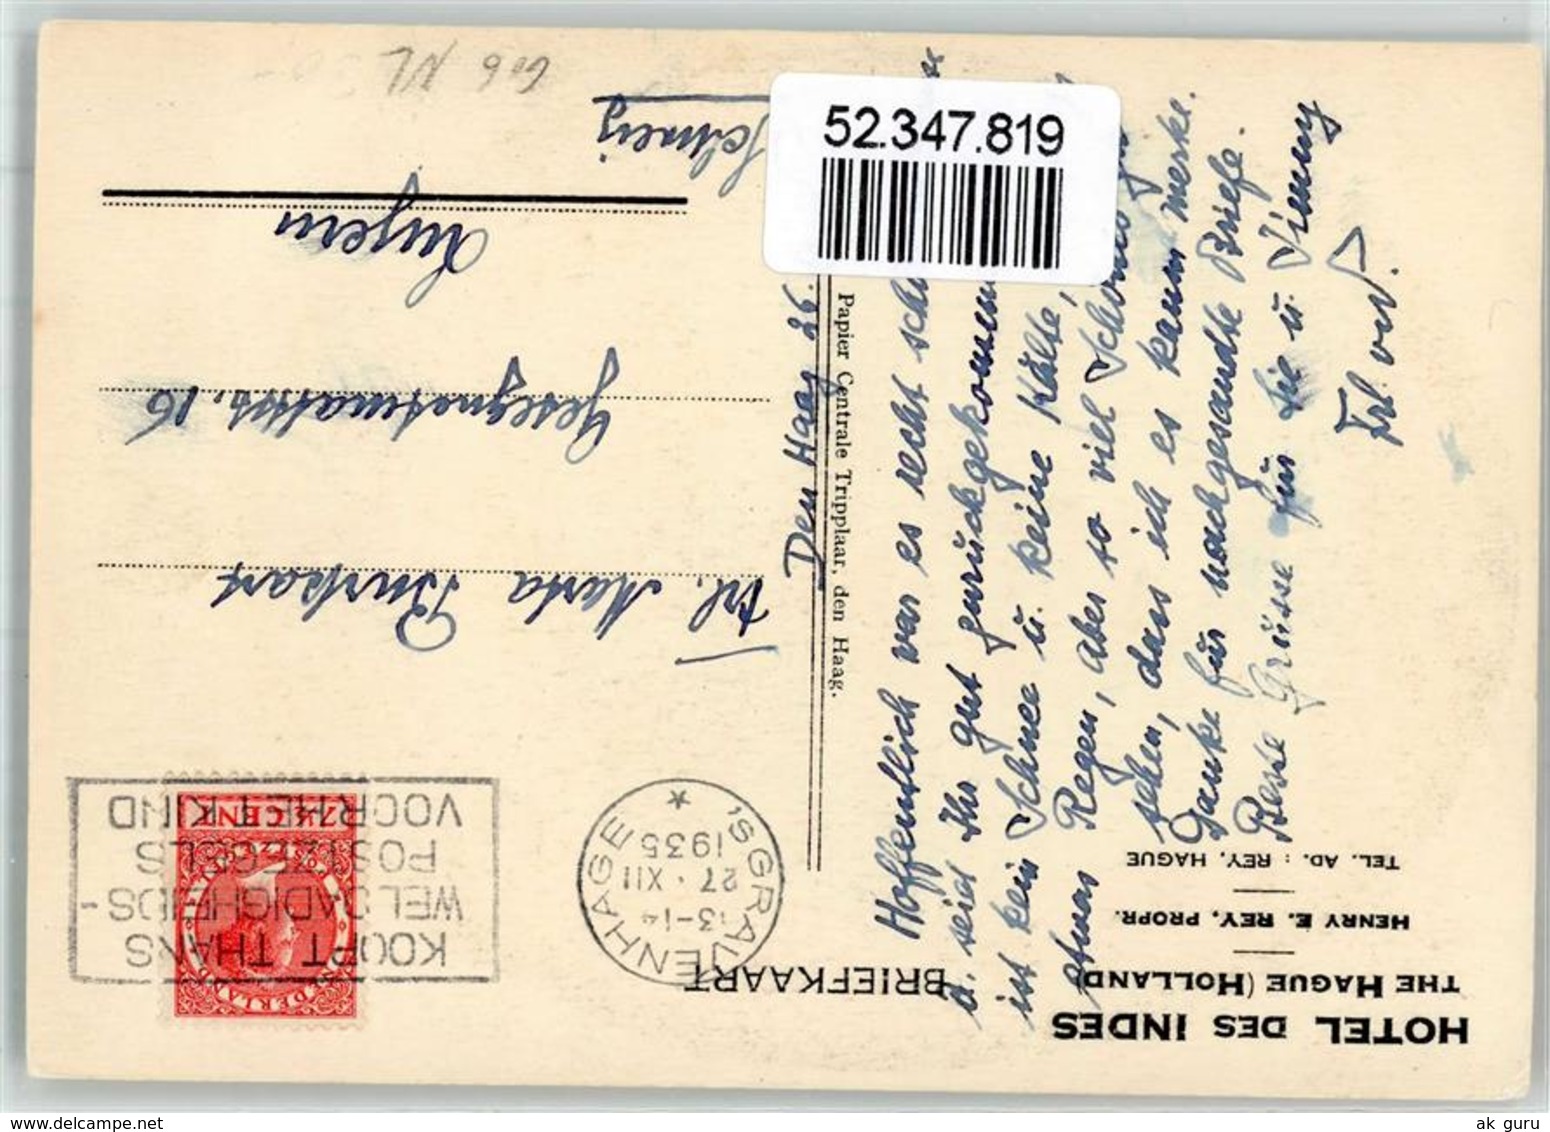 HOTEL DES INDES
THE HAGUE (HOLLAND)
HENRY E. REY, PROPR.
TEL. AD.: REY, HAGUE
BRIEFKAART
'SGRAVENHAGE
13-14
27.XII
1935
KOOPT THANS
WELDADIGHEIDS-
POSTZEGELS
VOOR HET KIND
NEDERLAND
7½ CENT
Papier Centrale Tripplaar, den Haag.
Den Haag 26.
Hoffentlich war es recht
u. seid Ihr gut zurückgekommen
ist kein Schnee u. keine Kälte,
etwas Regen, aber so viel Schönes zu
sehen, dass ich es kaum merke.
Danke für nachgesandte Briefe.
Beste Grüsse für Sie u.
Frl.
Frl. Marta Burkart
Gesegnetmattstr. 16
Luzern
Schweiz
52.347.819
ak guru